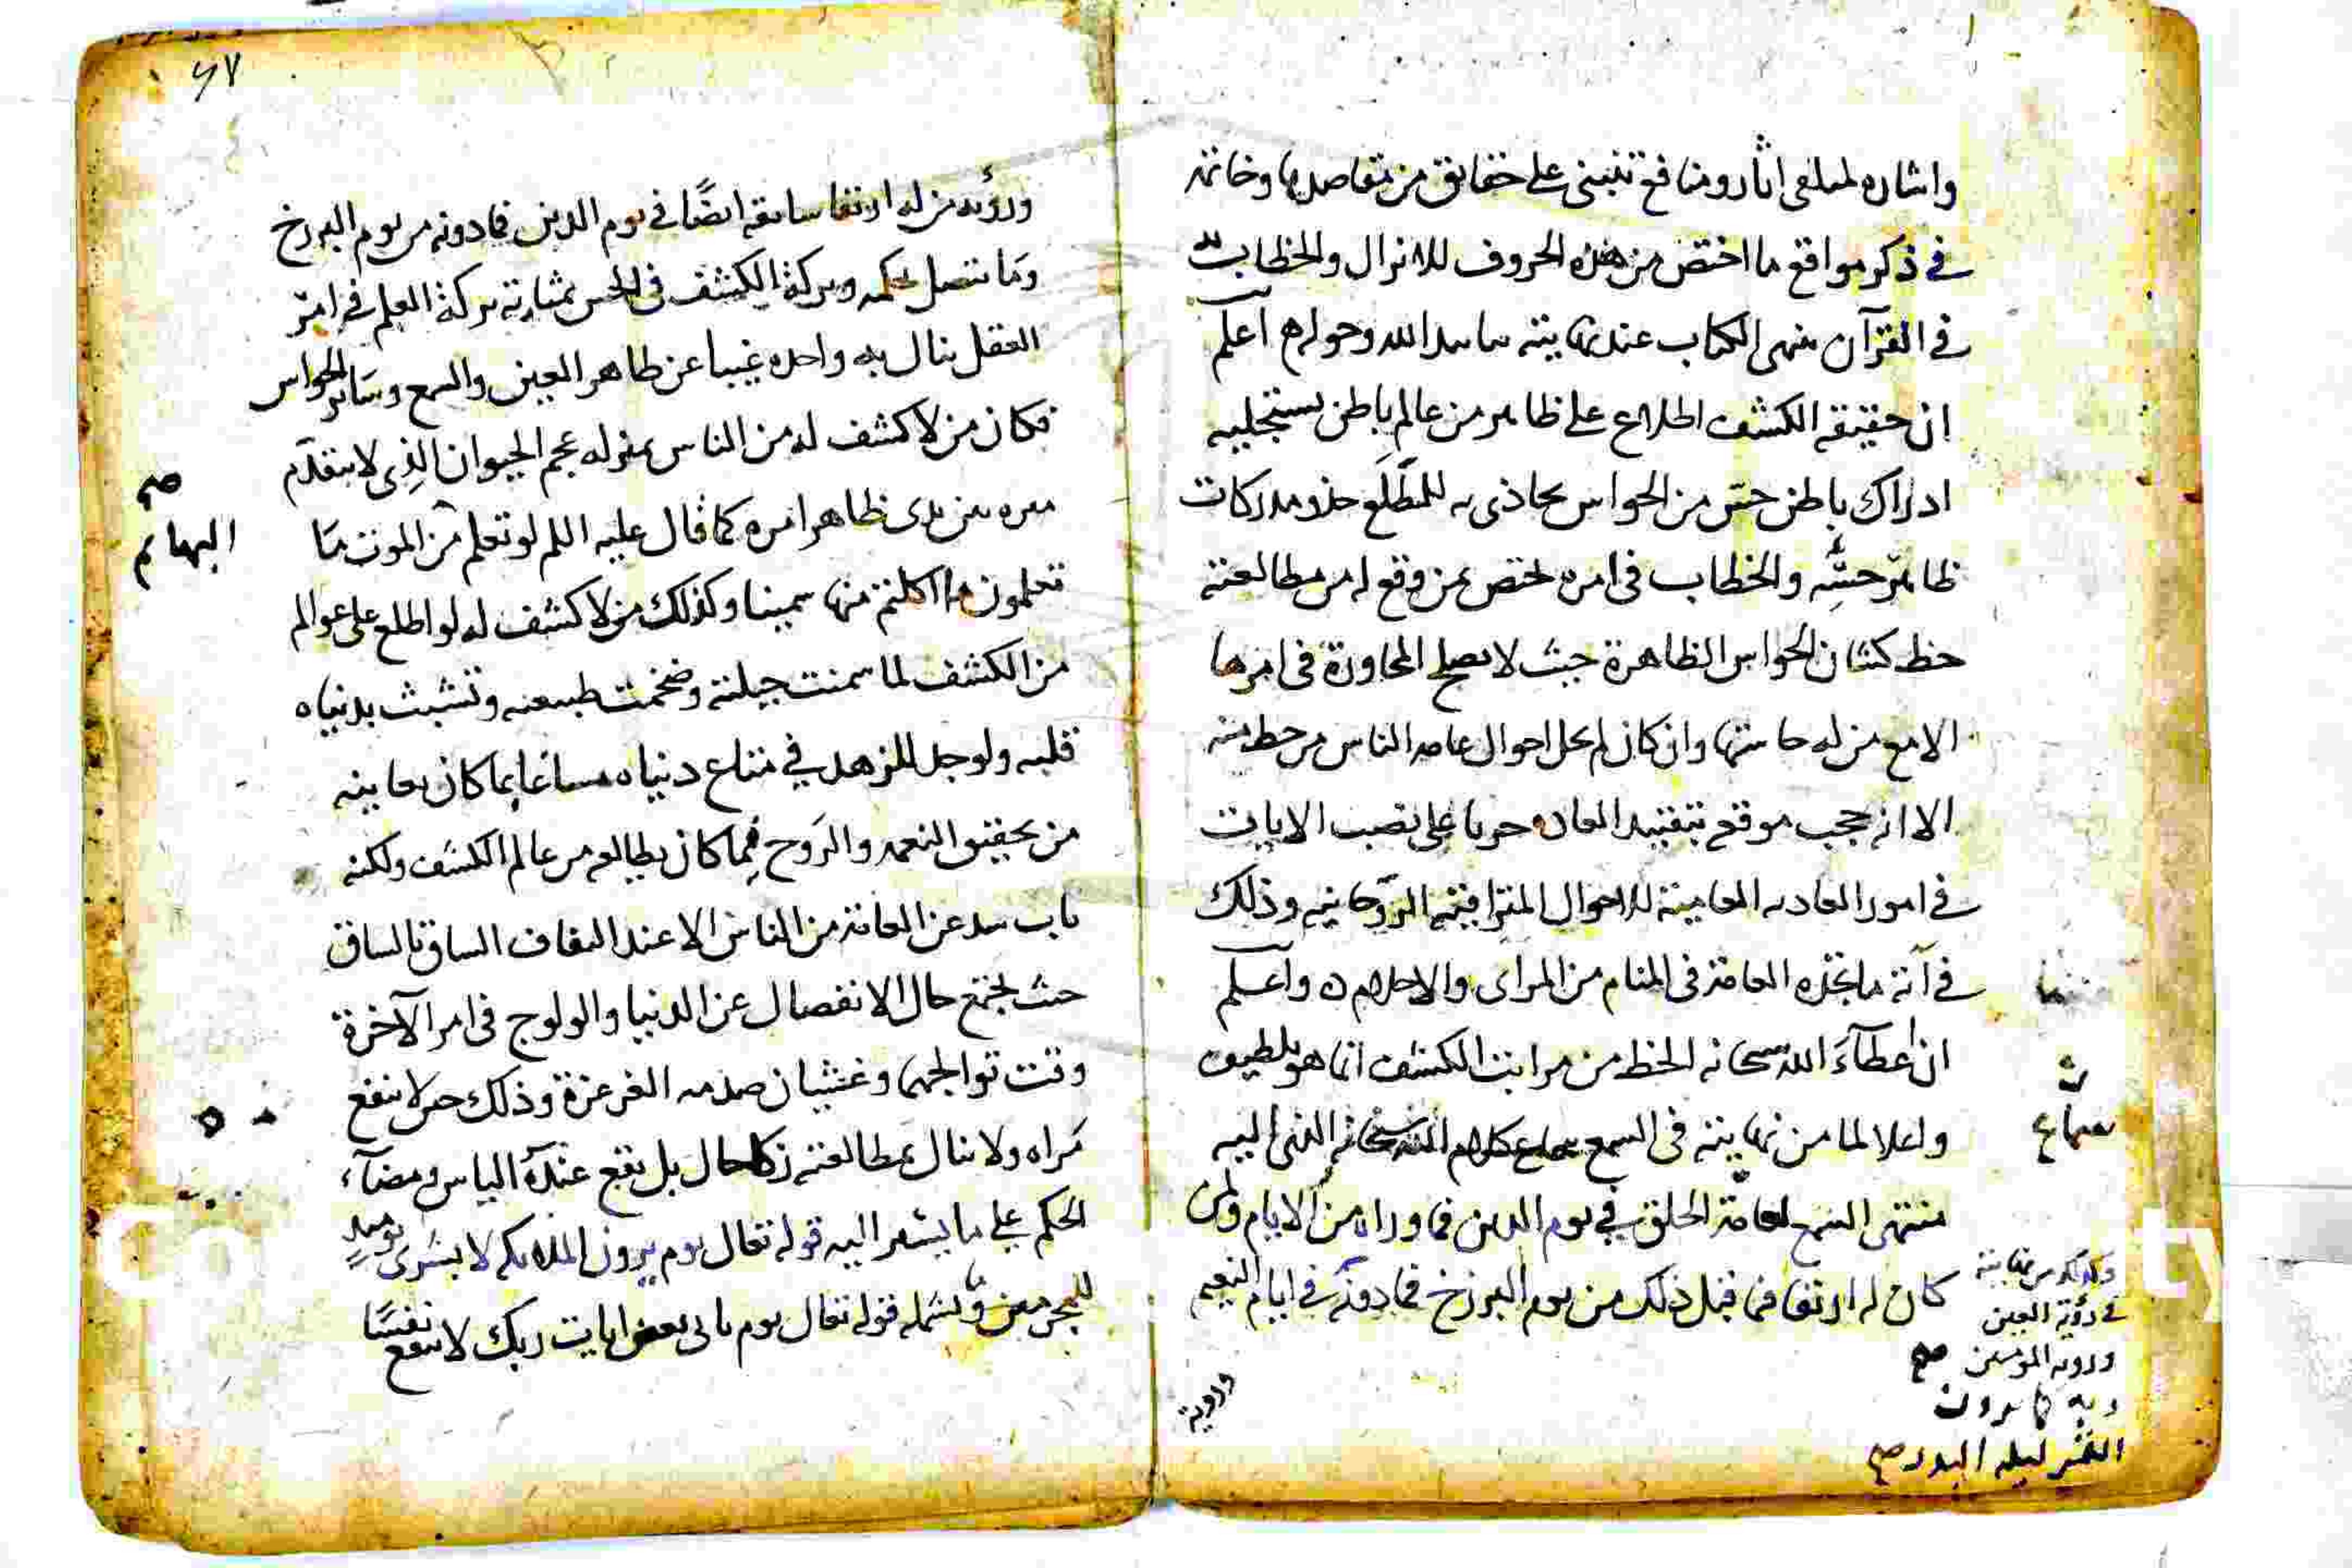 واشاره لمبلغى اثار ومنافع تنبنى على حقايق من مقاصدها وخاتمه
في ذكر مواقع ما اختص من هذه الحروف للانزال والخطاب به
في القرآن منهى الكتاب عند نهايته بتاييد الله وحوله اعلم
ان حقيقه الكشف اطلاع على ظاهر من عالم باطن يستجليه
ادراك باطن حس من الحواس يحاذى به للمطلع حذو مدركات
ظاهر حسه والخطاب فى امره يختص بمن وقع له من مطالعته
حظ كشان الحواس الظاهرة حيث لا يصلح المحاورة فى امرها
الا مع من له حاستها وان كان لم يخل احوال عامه الناس من حظ منه
الا انه حجب موقعه بتقييد العاده جريا على نصب الايات
في امور العاده المعاينة للاحوال المتراقية الروحانيه وذلك
في آية ما تجده العامة فى المنام من المراى والاحلام ه واعلم
ان اعطآء الله سحانه الحظ من مراتب الكشف انما هو تلطيف
واعلا لما من نهايته فى السمع سماع كلام الله سبحانه الذى اليه
منتهى السمع لعامة الخلق في يوم الدين فما وراه من الايام ولمن
كان له ارتقا فما قبل ذلك من يوم البرزخ فما دونه في ايام النعيم
سماع
وكذلك من نهايته
في رؤية العين
ورويه المومنين صح
ربه كما يرون
القمر ليله البدر صح
وروية
٦٧
ورؤيه من له ارتقا سابقه ايضًا في يوم الدين فما دونه من يوم البرزخ
وما يتصل بحكمه وبركة الكشف فى الحس بمثابة بركة العلم في امر
العقل ينال به واحده غيبا عن ظاهر العين والسمع وساير الحواس
فكان من لا كشف له من الناس بمنزله عجم الحيوان الذى لا يتقدم
بين يدى ظاهر امره كما قال عليه السلم لو تعلم من الموت ما
البهائم صح
تعلمون ما اكلتم منها سمينا وكذلك من لا كشف له لو اطلع على عوالم
من الكشف لما سمنت جبلته وضخمت طبيعته وتشبث بدنياه
قلبه ولوجد للزهد في متاع دنياه مساغا بما كان يعاينه
من تحقيق النعمه والروح فيما كان يطالعه من عالم الكشف ولكنه
باب سد عن العامة من الناس الا عند التفاف الساق بالساق
حيث تجتمع حال الانفصال عن الدنيا والولوج فى امر الآخرة
وقت تواجههما وغشيان صدمه الغرغرة وذلك حين لا ينفع
مراه ولا ينال بمطالعته زكا حال بل يقع عنده الياس ومضآء
الحكم على ما يشعر اليه قوله تعال يوم يرون الملايكه لا بشرى يوميذ
للمجرمين وما يشمله قوله تعال يوم ياتى بعض ايات ربك لا ينفع نفسًا